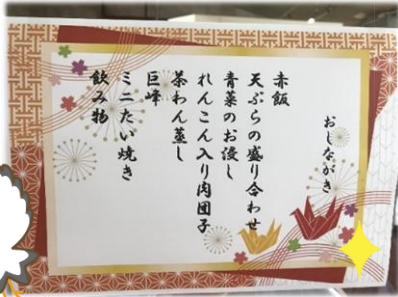 おしながき
赤飯
天ぷらの盛り合わせ
青菜のお浸し
れんこん入り肉団子
茶わん蒸し
巨峰
ミニたい焼き
飲み物